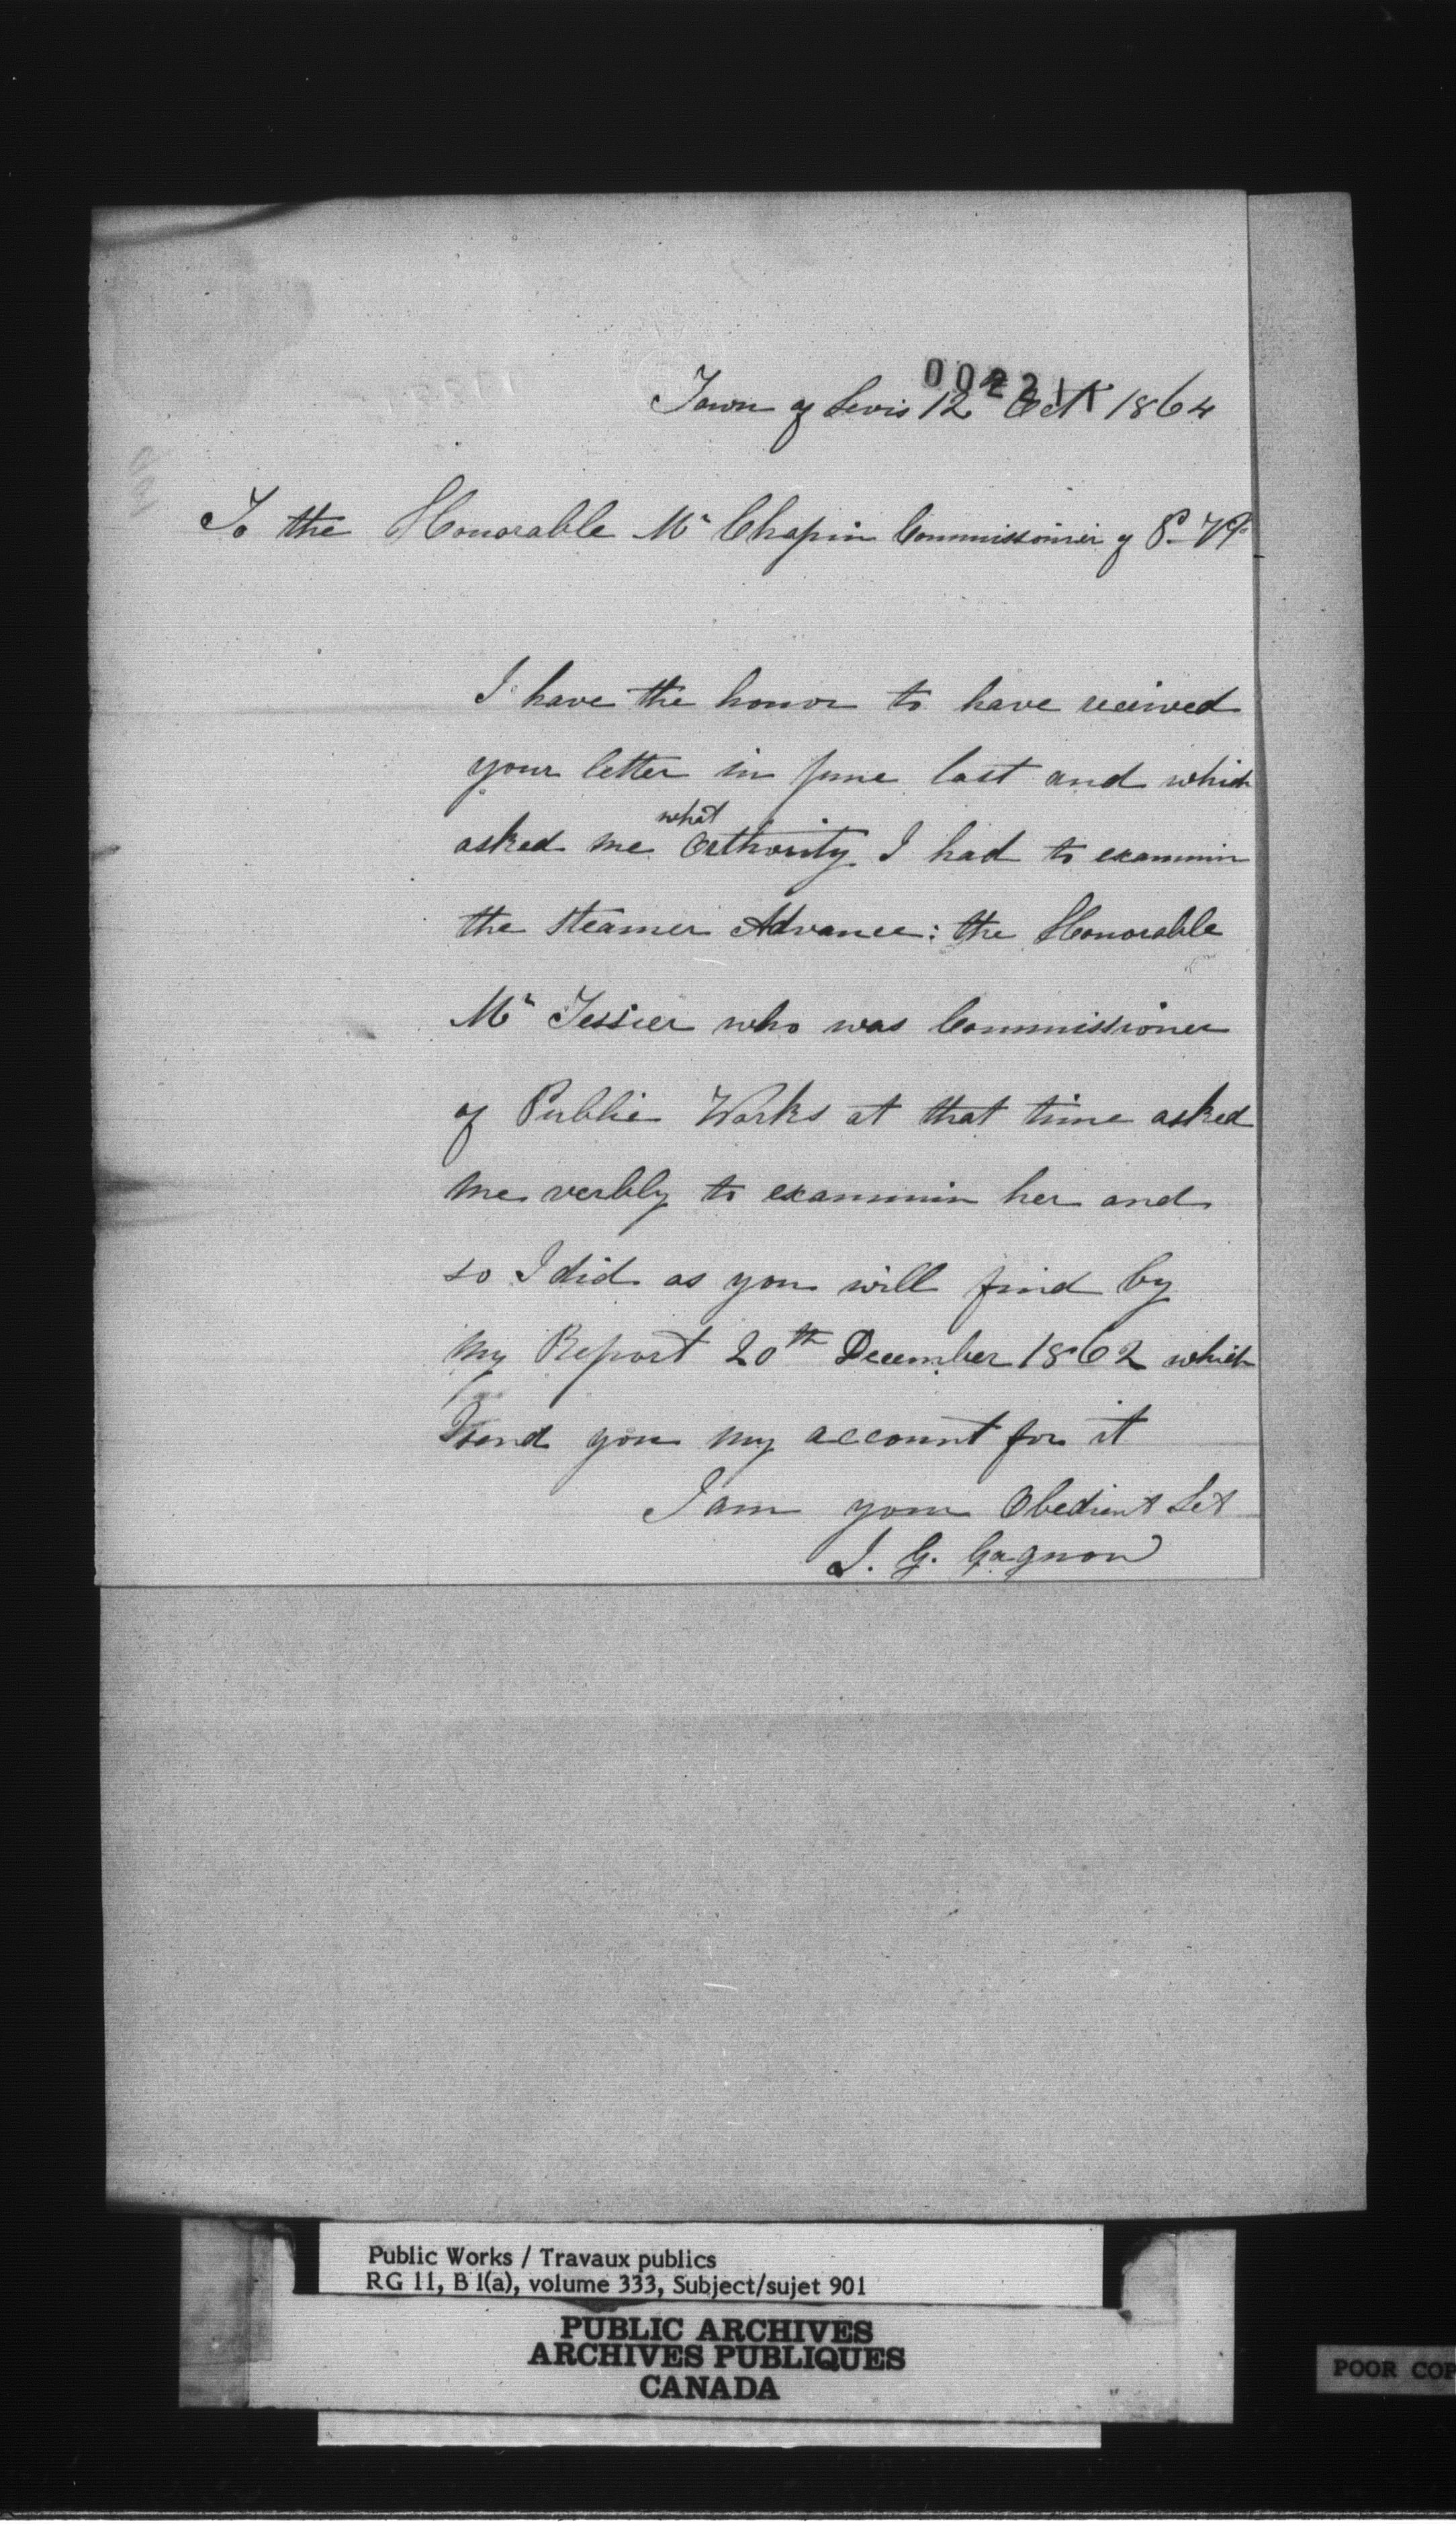 Town of Levis 12th Oct 1864
To the Honorable Mr Chapin Commissoinier of P. W.
I have the honor to have received
your letter in June last and which
asked me what Orthority I had to exammin
the steamer Advance: the Honorable
Mr Tessier who was Commissioner
of Public Works at that time asked
me verbly to exammin her and
so I did as you will find by
my Report 20th December 1862 which
I send you my account for it
I am your Obedient Set
J. G. Gagnon
Public Works / Travaux publics
RG 11, B 1(a), volume 333, Subject/sujet 901
PUBLIC ARCHIVES
ARCHIVES PUBLIQUES
CANADA
POOR COP